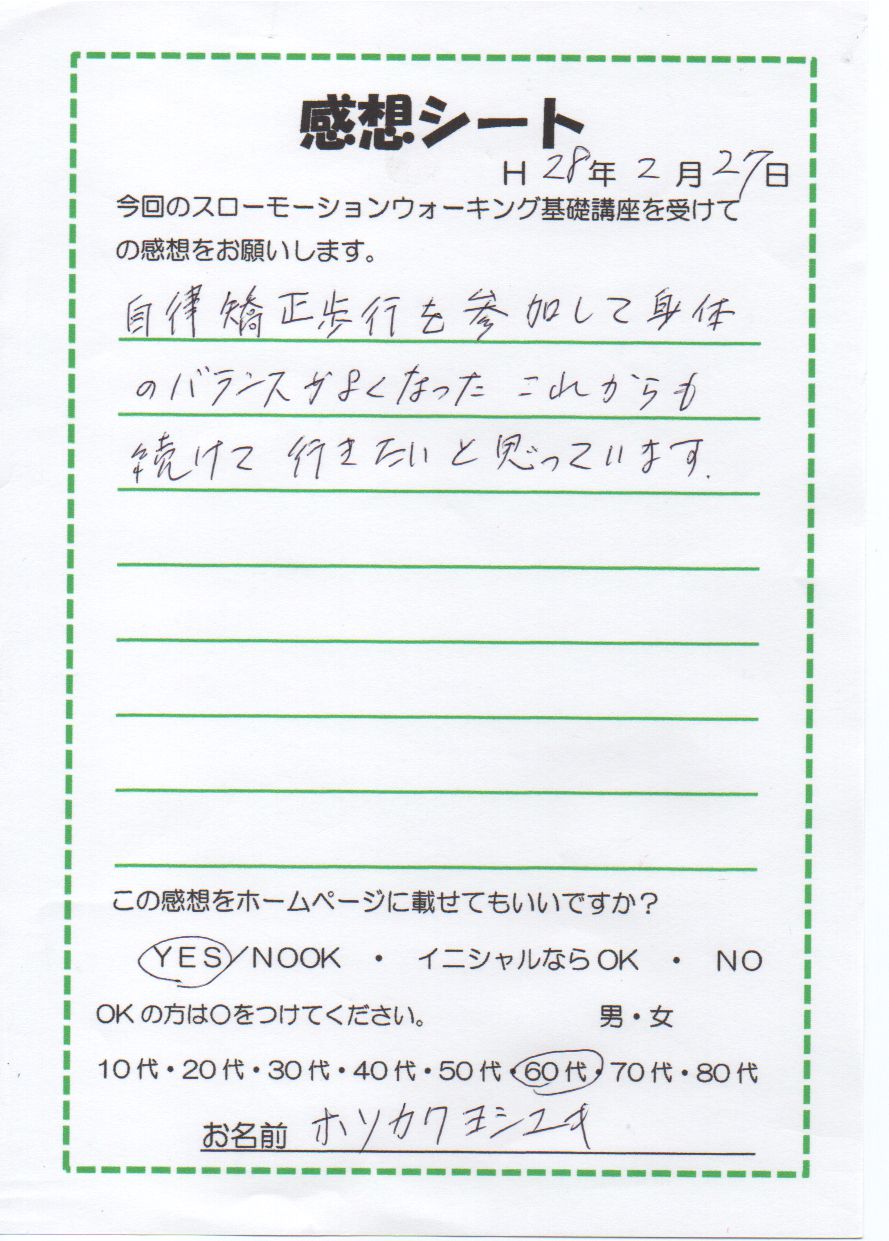 感想シート
H 28年 2月 27日
今回のスローモーションウォーキング基礎講座を受けて
の感想をお願いします。
自律矯正歩行を参加して身体
のバランスがよくなった これからも
続けて 行きたいと思っています.
この感想をホームページに載せてもいいですか？
YES/NOOK ・ イニシャルなら OK ・ NO
OKの方は○をつけてください。 男・女
10代・20代・30代・40代・50代・60代・70代・80代
お名前 ホソカワヨシユキ